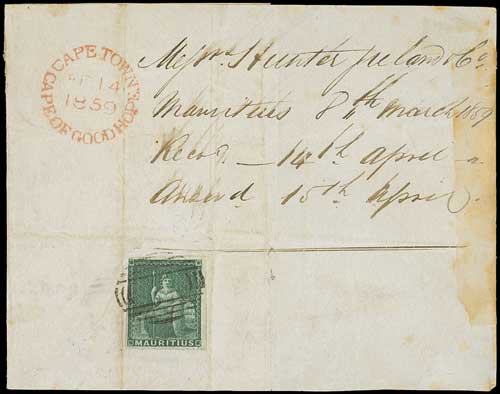 CAPE TOWN
AP 14
1859
CAPE OF GOOD HOPE
Messrs. Hunter Ireland & Co
Mauritius 8th March 1859
Recd. – 14th april –
Answd 15th april.
MAURITIUS